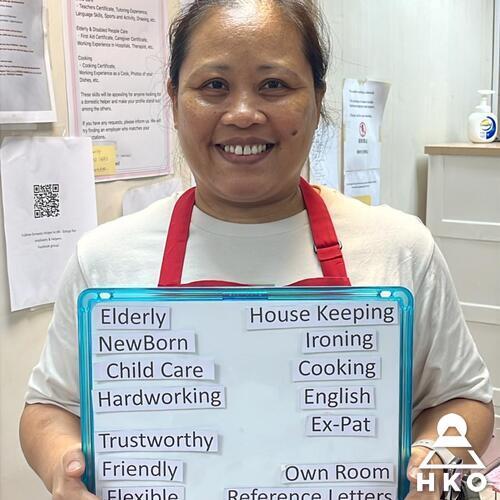 - Teachers Certificate, Tutoring Experience,
Language Skills, Sports and Activity, Drawing, etc.
Elderly & Disabled People Care
- First Aid Certificate, Caregiver Certificate,
Working Experience in Hospitals, Therapist, etc.
Cooking
- Cooking Certificate,
Working Experience as a Cook, Photos of your
Dishes, etc.
These skills will be appealing for anyone looking for
a domestic helper and make your profile stand
among the others.
If you have any requests, please inform us. We will
try finding an employer who matches your
Elderly
NewBorn
Child Care
Hardworking
Trustworthy
Friendly
Flexible
House Keeping
Ironing
Cooking
English
Ex-Pat
Own Room
Reference Letters
HKO